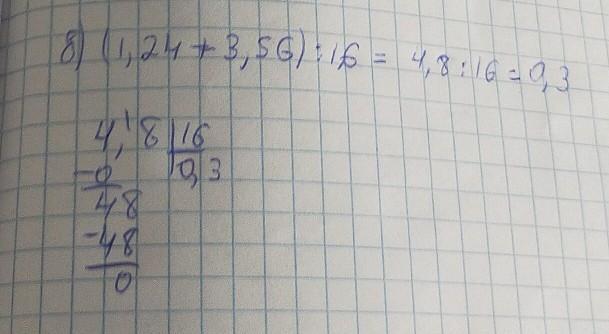 8) (1,24 + 3,56) : 16 = 4,8 : 16 = 0,3
4,8 | 16
-0 0,3
48
-48
0